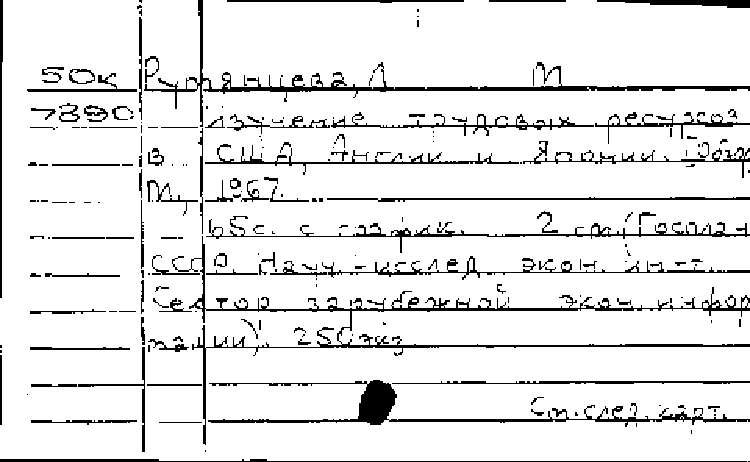 50к Румянцева, Л М
7890 Изучение трудовых ресурсов
в США, Англии и Японии. Обзор
М., 1967.
65с. с график. 2 см. (Госплан
СССР. Науч.-исслед. экон. ин-т.
Сектор зарубежной экон. инфор
мации). 250экз
См. след. карт.